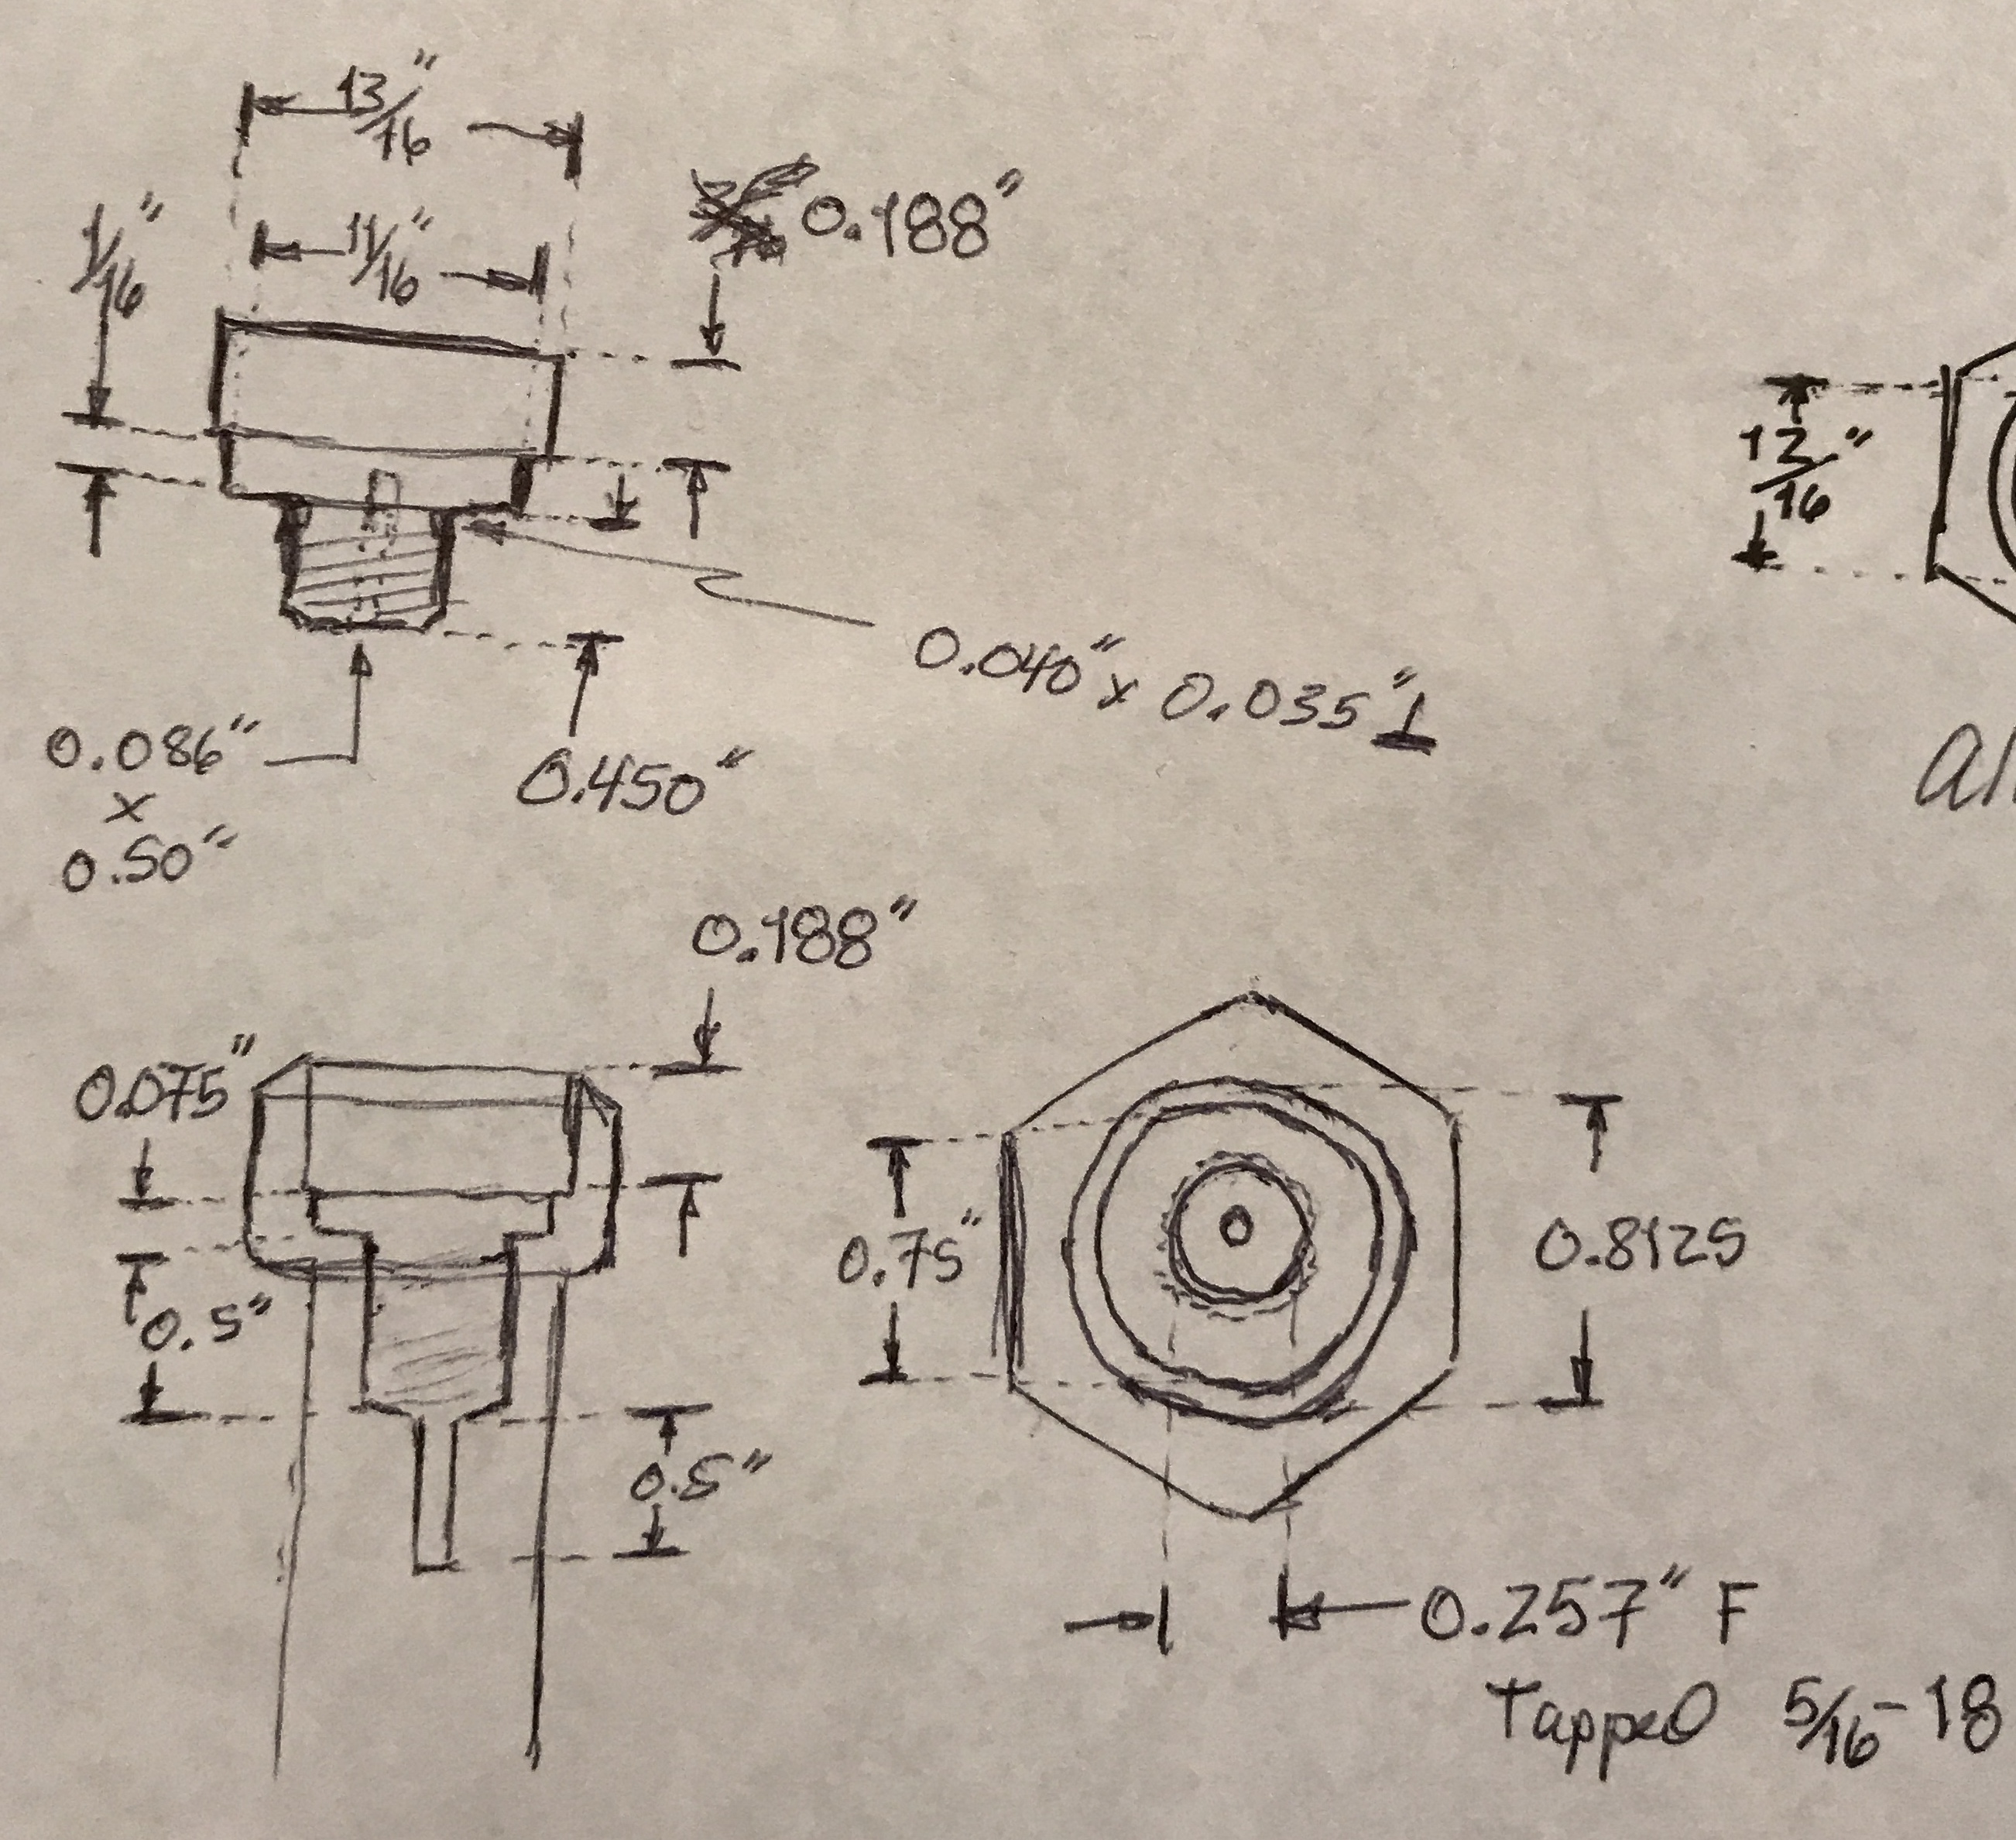 13/16"
1/16"
11/16"
0.188"
12/16"
0.040" x 0.035" ⊥
0.086"
x
0.50"
0.450"
0.188"
0.075"
0.5"
0.5"
0.75"
0.8125
0.257" F
Tapped 5/16-18